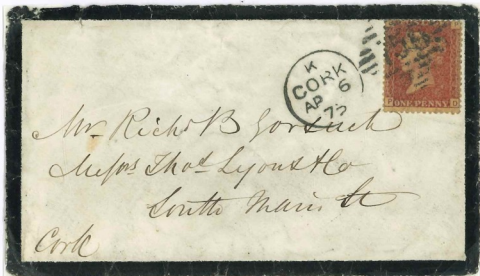 K
CORK
AP 6
75
ONE PENNY
D
Mr Richd B
Messrs Thos Lyons & Co
South Main St
Cork